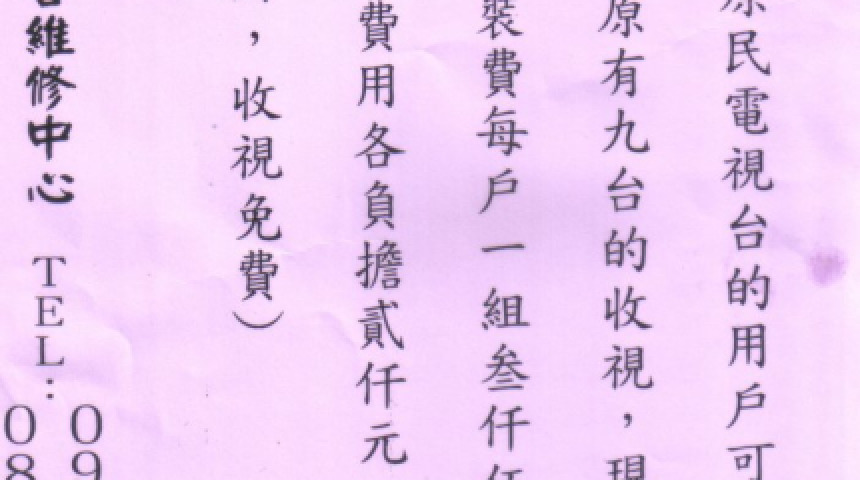 原民電視台的用戶可
原有九台的收視，現
裝費每戶一組叁仟
費用各負擔貳仟元
，收視免費）
維修中心 TEL：
09
08